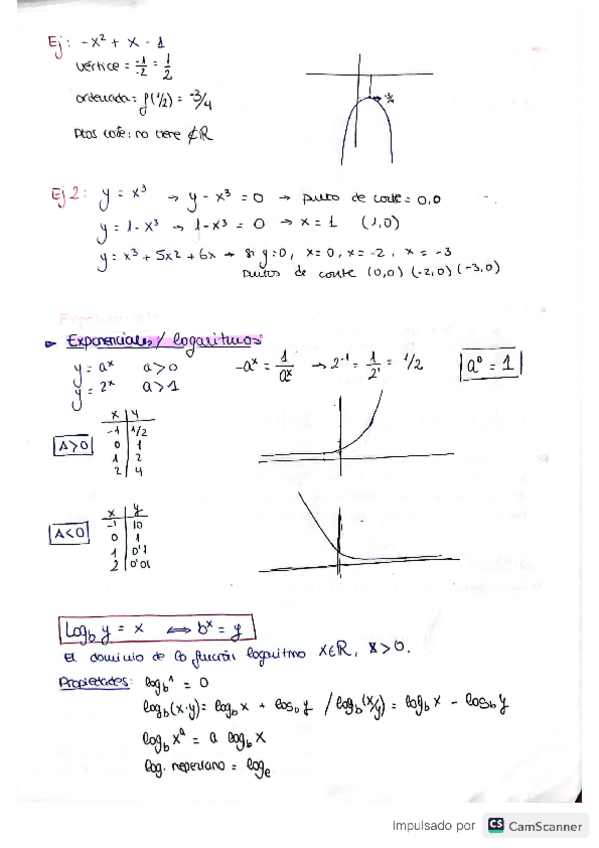 Ej: -x² + x - 1
vértice = -1/-2 = 1/2
ordenada: f(1/2) = -3/4
-3/4
Ptos corte: no tiene ∉ R
Ej 2: y = x³ → y - x³ = 0 → punto de corte = 0,0
y = 1 - x³ → 1 - x³ = 0 → x = 1 (1,0)
y = x³ + 5x2 + 6x → si y=0, x=0, x=-2, x=-3
puntos de corte (0,0) (-2,0) (-3,0)
Exponenciales / logaritmos
y = aˣ a>0 -aˣ = 1/aˣ → 2⁻¹ = 1/2¹ = 1/2 a⁰ = 1
y = 2ˣ a>1
x y
-1 1/2
A>0 0 1
1 2
2 4
x y
-1 10
A<0 0 1
1 0'1
2 0'01
Log_b y = x ⟺ bˣ = y
El dominio de la función logaritmo x∈R, x>0.
Propiedades: log_b 1 = 0
log_b (x·y) = log_b x + log_b y / log_b (x/y) = log_b x - log_b y
log_b xᵃ = a log_b x
log. neperiano = log_e
Impulsado por CS CamScanner